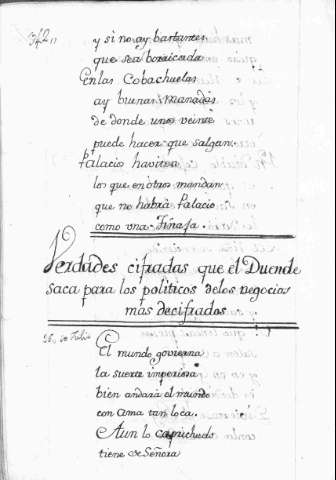 342,,
y si no ay bastantes
que sea borricada
En las Cobachuelas
ay buenas manadas
de donde unos veinte
puede hacer que salgan.
Palacio havitea
los que en otros mandan
que no habrà Palacio
como una Tinaja.
Verdades cifradas que el Duende
saca para los politicos de los negocios
mas decifrados
de Julio
El mundo govierna
la suerte imperiosa
bien andarà el mundo
con Ama tan loca.
Aun lo caprichudo
tiene de Señora